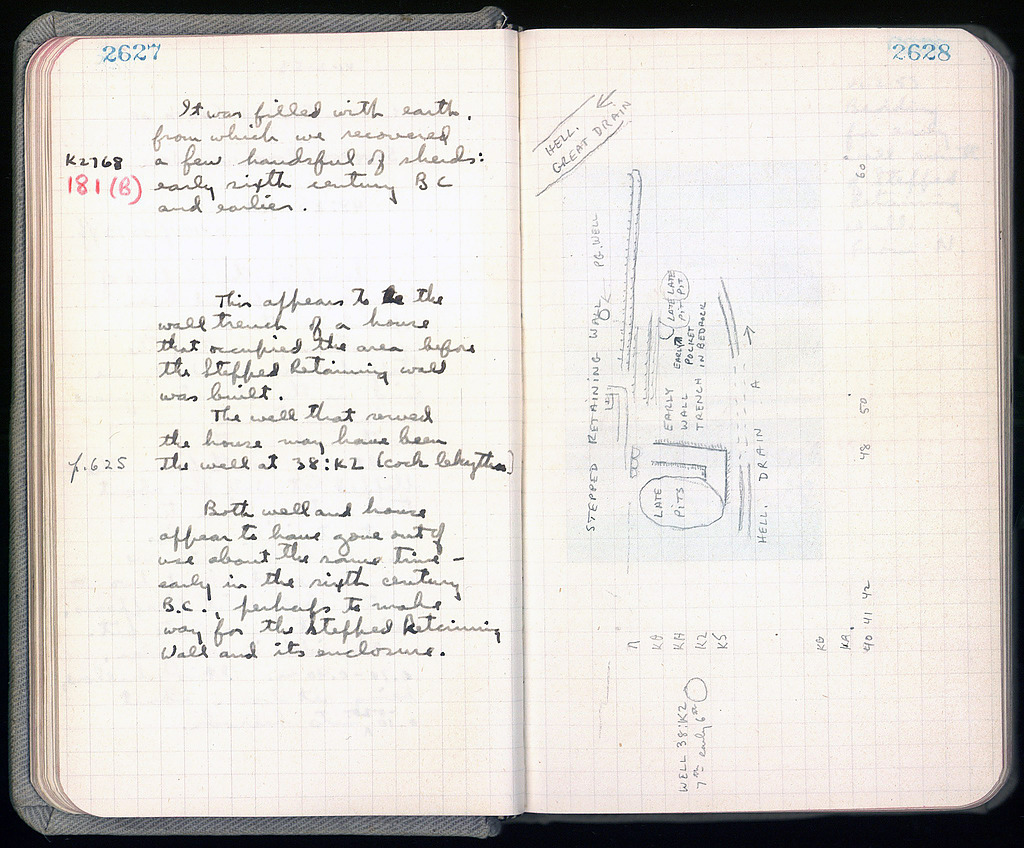 2627
It was filled with earth,
from which we recovered
K2768 a few handsful of sherds:
181 (B) early sixth century B C
and earlier.
This appears to be the
wall trench of a house
that occupied the area before
the Stepped Retaining wall
was built.
The well that served
the house may have been
p. 625 the well at 38:KZ (cock lekythos)
Both well and house
appear to have gone out of
use about the same time –
early in the sixth century
B.C., perhaps to make
way for the Stepped Retaining
Wall and its enclosure.
2628
HELL.
GREAT DRAIN
STEPPED RETAINING WALL
PG. WELL
LATE
PIT
LATE
PIT
EARLY
POCKET
IN BEDROCK
EARLY
WALL
TRENCH
LATE
PITS
HELL. DRAIN A
Λ
KΘ
KH
KZ
K5
WELL 38:KZ
7th early 6th
60
50
48
42
41
40
KΘ
KA